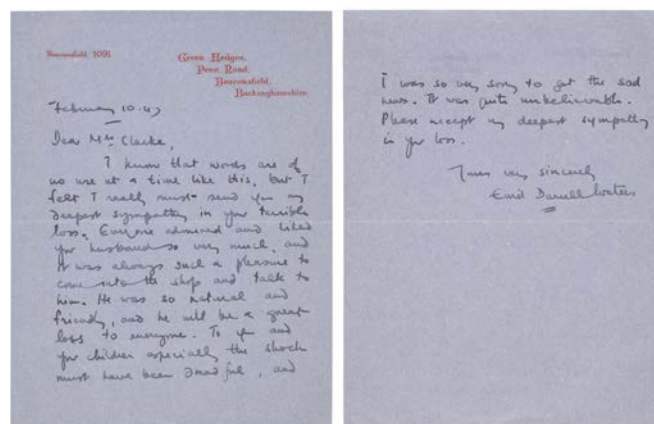 Beaconsfield 1091
Green Hedges,
Penn Road,
Beaconsfield,
Buckinghamshire.
February 10. 47
Dear Mrs Clarke,
I know that words are of
no use at a time like this, but I
felt I really must send you my
deepest sympathy in your terrible
loss. Everyone admired and liked
yr husband so very much, and
it was always such a pleasure to
come into the shop and talk to
him. He was so natural and
friendly, and he will be a great
loss to everyone. To you and
yr children especially the shock
must have been dreadful, and
I was so very sorry to get the sad
news. It was quite unbelievable.
Please accept my deepest sympathy
in yr loss.
Yours very sincerely
Enid Darrell Waters